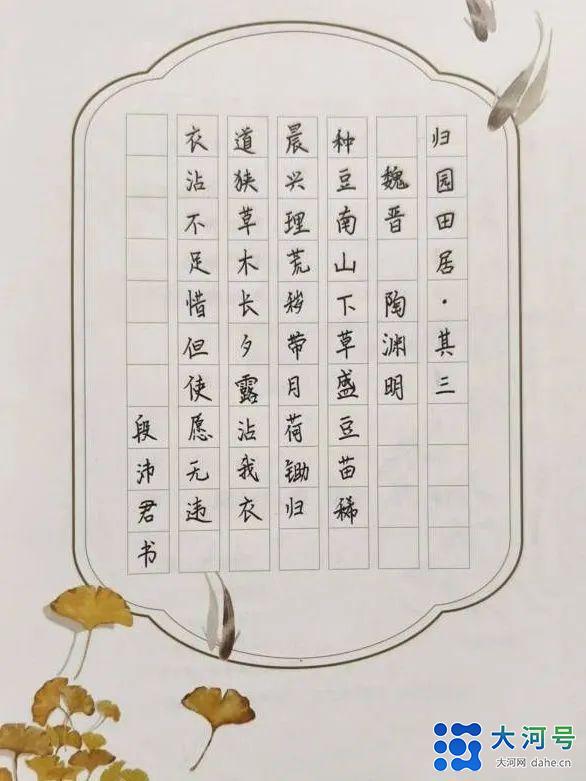 归园田居·其三
魏晋 陶渊明
种豆南山下草盛豆苗稀
晨兴理荒秽带月荷锄归
道狭草木长夕露沾我衣
衣沾不足惜但使愿无违
段沛君书
大河号
大河网 dahe.cn